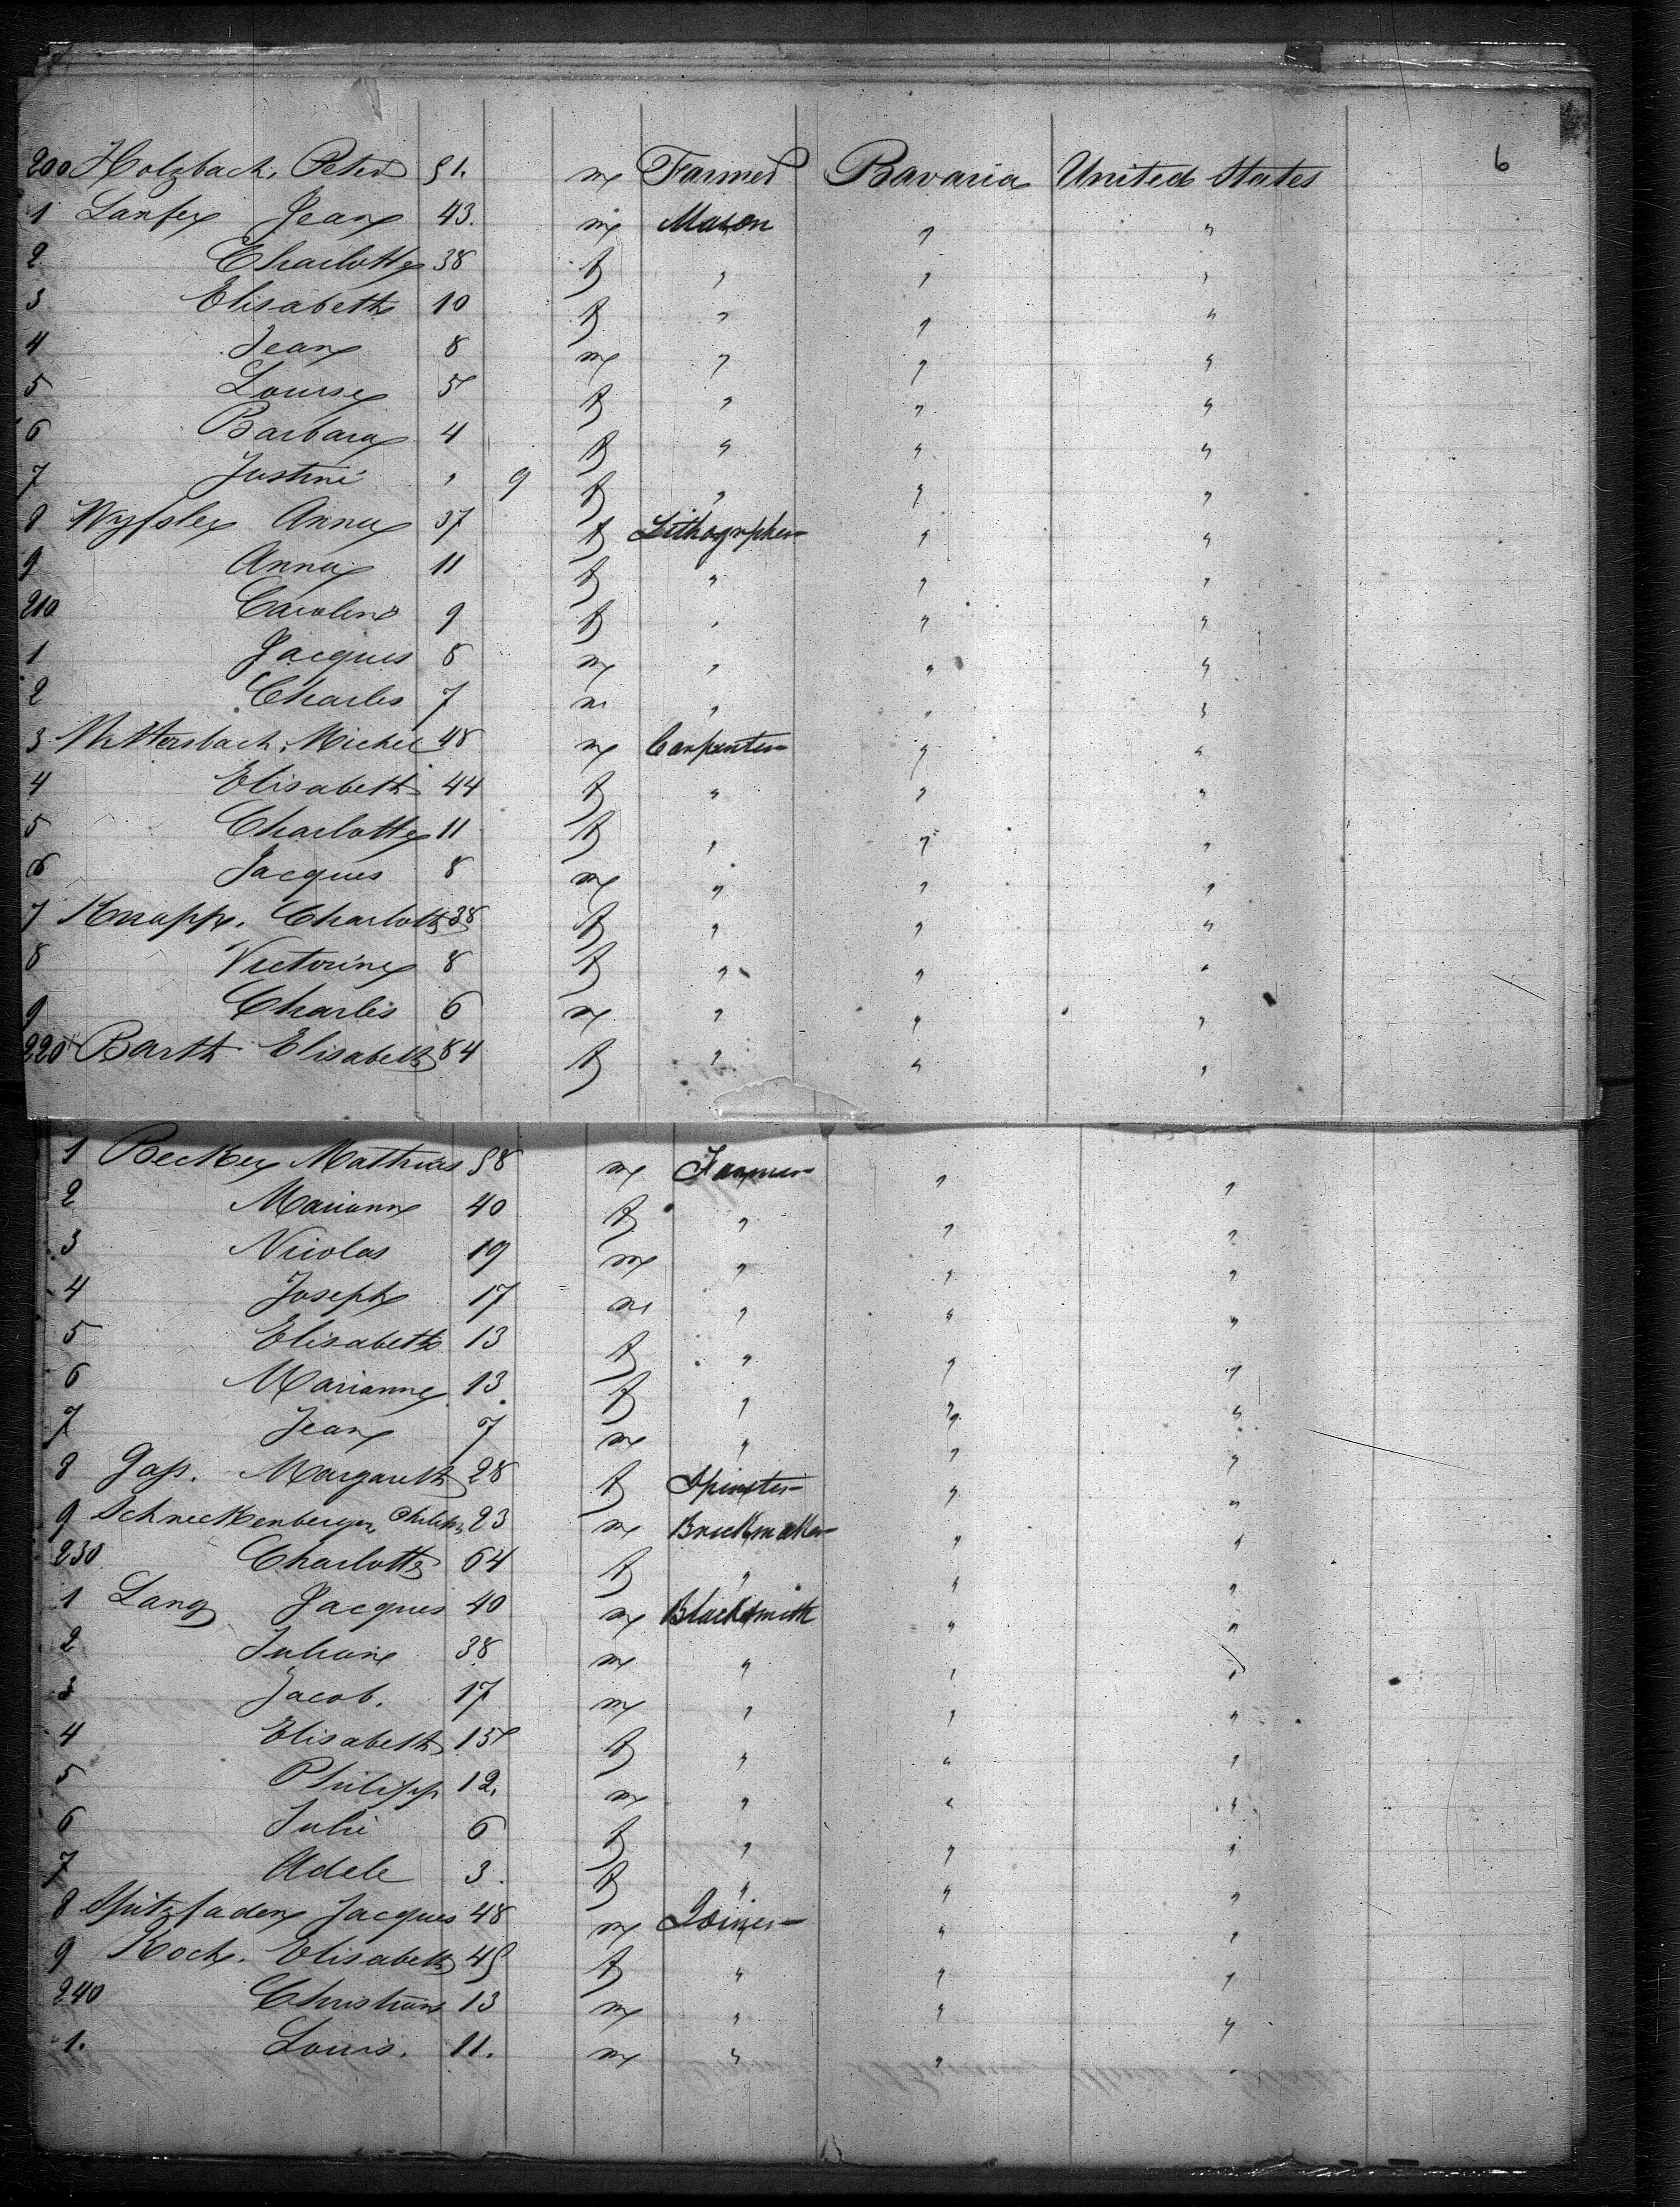 6
200 Holzbach, Peter 51. m Farmer Bavaria United States
1 Lanfer Jean 43. m Mason " "
2 Charlotte 38 f " " "
3 Elisabeth 10 f " " "
4 Jean 8 m " " "
5 Louise 5 f " " "
6 Barbara 4 f " " "
7 Justine " 9 f " " "
8 Anna 37 f Lithographer " "
9 Anna 11 f " " "
210 Caroline 9 f " " "
1 Jacques 8 m " " "
2 Charles 7 m " " "
3 Mittersbach, Michel 48 m Carpenter " "
4 Elisabeth 44 f " " "
5 Charlotte 11 f " " "
6 Jacques 8 m " " "
7 Knapp. Charlotte 38 f " " "
8 Victorine 8 f " " "
9 Charles 6 m " " "
220 Barth Elisabeth 84 f " " "
1 Becker Mathias 58 m Farmer " "
2 Marianne 40 f " " "
3 Nicolas 19 m " " "
4 Joseph 17 m " " "
5 Elisabeth 13 f " " "
6 Marianne 13 f " " "
7 Jean 7 m " " "
8 Gass. Margareth 28 f Spinster " "
9 Schneckenberger, Philipp 23 m Brickmaker " "
230 Charlotte 64 f " " "
1 Lang Jacques 40 m Blacksmith " "
2 Juliane 38 m " " "
3 Jacob. 17 m " " "
4 Elisabeth 15 f " " "
5 Philipp 12. m " " "
6 Julie 6 f " " "
7 Adele 3. f " " "
8 Spitzfaden Jacques 48 m Joiner " "
9 Koch. Elisabeth 45 f " " "
240 Christian 13 m " " "
1. Louis. 11. m " " "